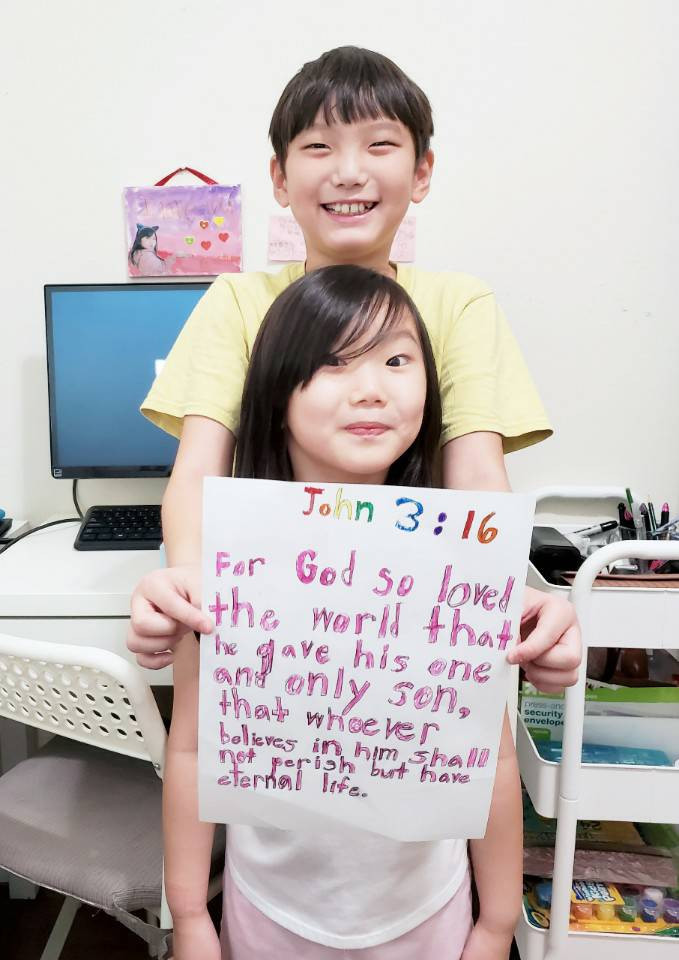 John 3:16
For God so loved
the world that
he gave his one
and only son,
that whoever
believes in him shall
not perish but have
eternal life.
press-and-
security
envelope